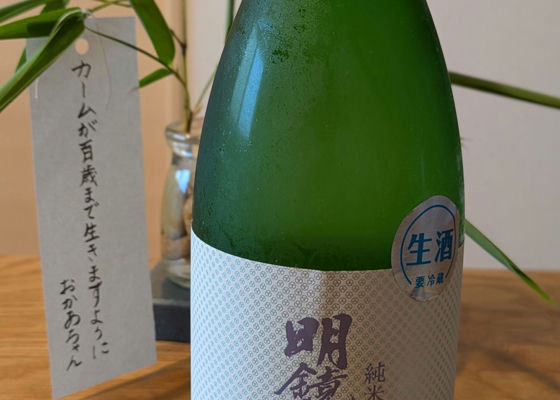 カームが百歳まで生きますように
おかあちゃん
生酒
要冷蔵
明鏡
純米